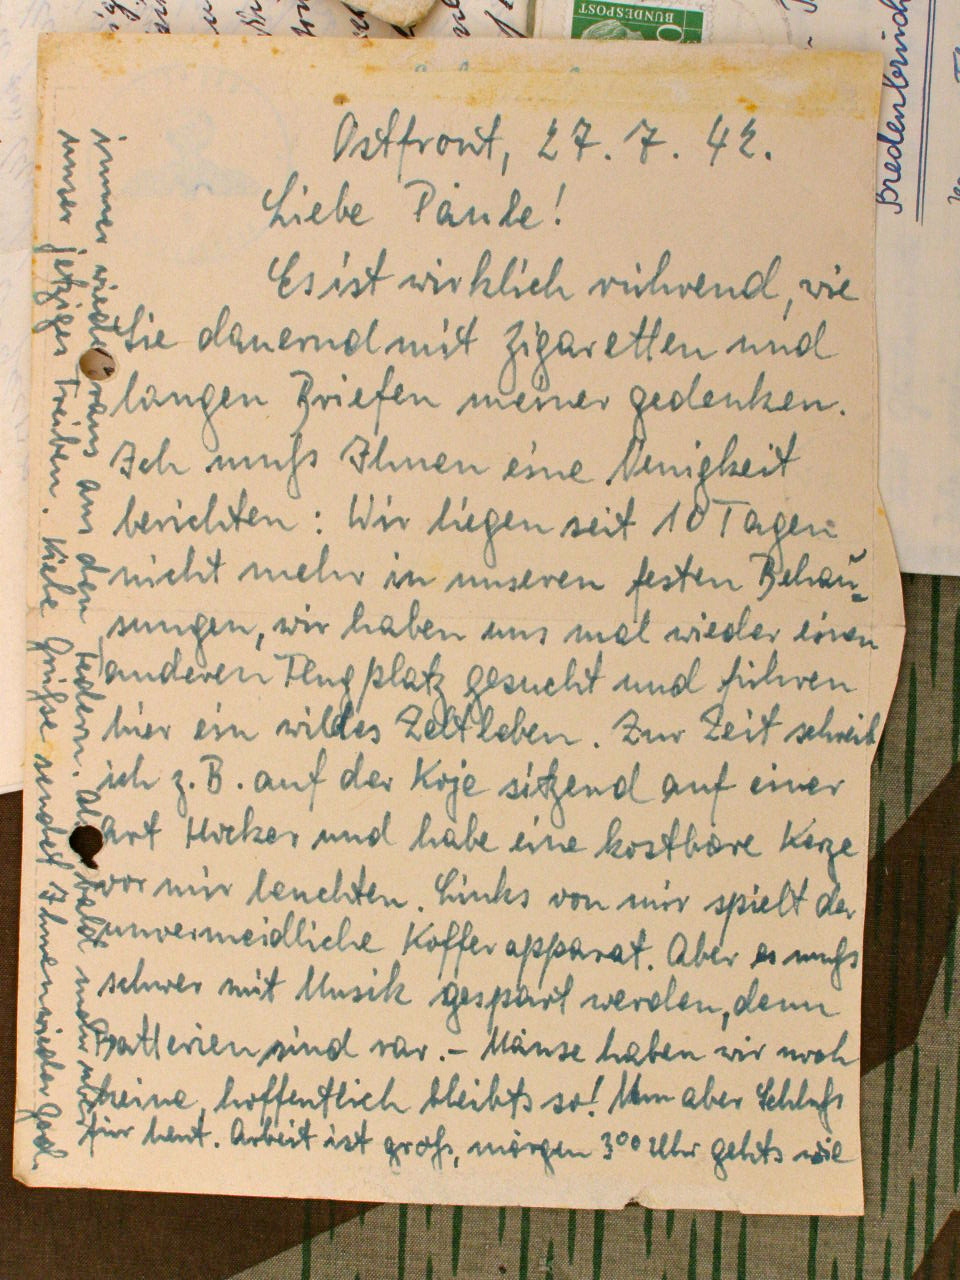 Ostfront, 27. 7. 42.
Liebe
Es ist wirklich rührend, wie
Sie dauernd mit Zigaretten und
langen Briefen meiner gedenken.
Ich muß Ihnen eine Neuigkeit
berichten: Wir liegen seit 10 Tagen
nicht mehr in unseren festen Behau-
sungen, wir haben uns mal wieder einen
anderen Flugplatz gesucht und führen
hier ein wildes Zeltleben. Zur Zeit schreib
ich z.B. auf der Koje sitzend auf einer
Art Hocker und habe eine kostbare Kerze
vor mir leuchten. Links von mir spielt der
unvermeidliche Kofferapparat. Aber es muß
schwer mit Musik gespart werden, denn
Batterien sind rar. – Mäuse haben wir noch
keine, hoffentlich bleibts so! Nun aber Schluß
für heut. Arbeit ist groß, morgen 3⁰⁰ Uhr gehts wie
immer wieder raus aus den Federn. Also bald mehr über
unser jetziges Treiben. Viele Grüße sendet Ihnen wieder
BUNDESPOST